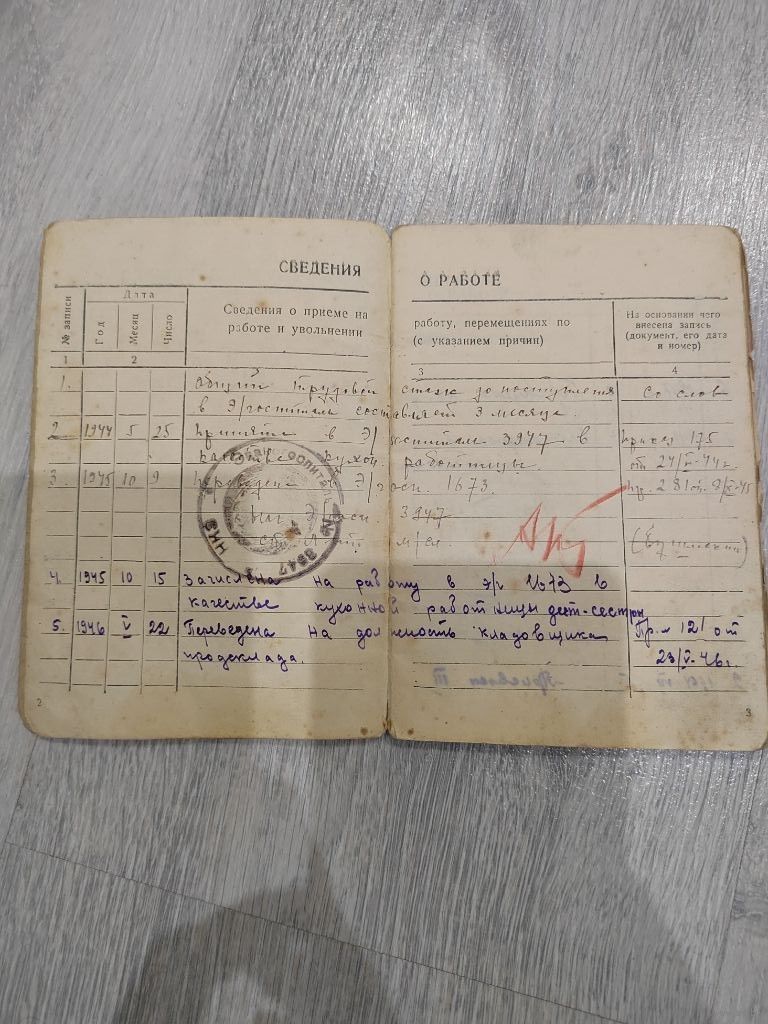 СВЕДЕНИЯ О РАБОТЕ
№ записи
Дата
Год
Месяц
Число
Сведения о приеме на работу, перемещениях по
работе и увольнении (с указанием причин)
На основании чего
внесена запись
(документ, его дата
и номер)
1 2 3 4
1. Общий трудовой стаж до поступления Со слов
в Э/госпиталь составляет 3 месяца.
2 1944 5 25 Принята в Э/госпиталь 3947 в Приказ 175
качестве кухон. работницы. от 24/V-44г.
3. 1945 10 9 Переведена в Э/госп. 1673. пр. 281 от 8/X-45
Нач Э/госп. 3947
м/сл.
№ 3947
НКЗ
4. 1945 10 15 Зачислена на работу в э/г 1673 в
качестве кухонной работницы дет-сестры
5. 1946 V 22 Переведена на должность кладовщика Пр. № 121 от
продсклада. 23/V-46г.
2 3